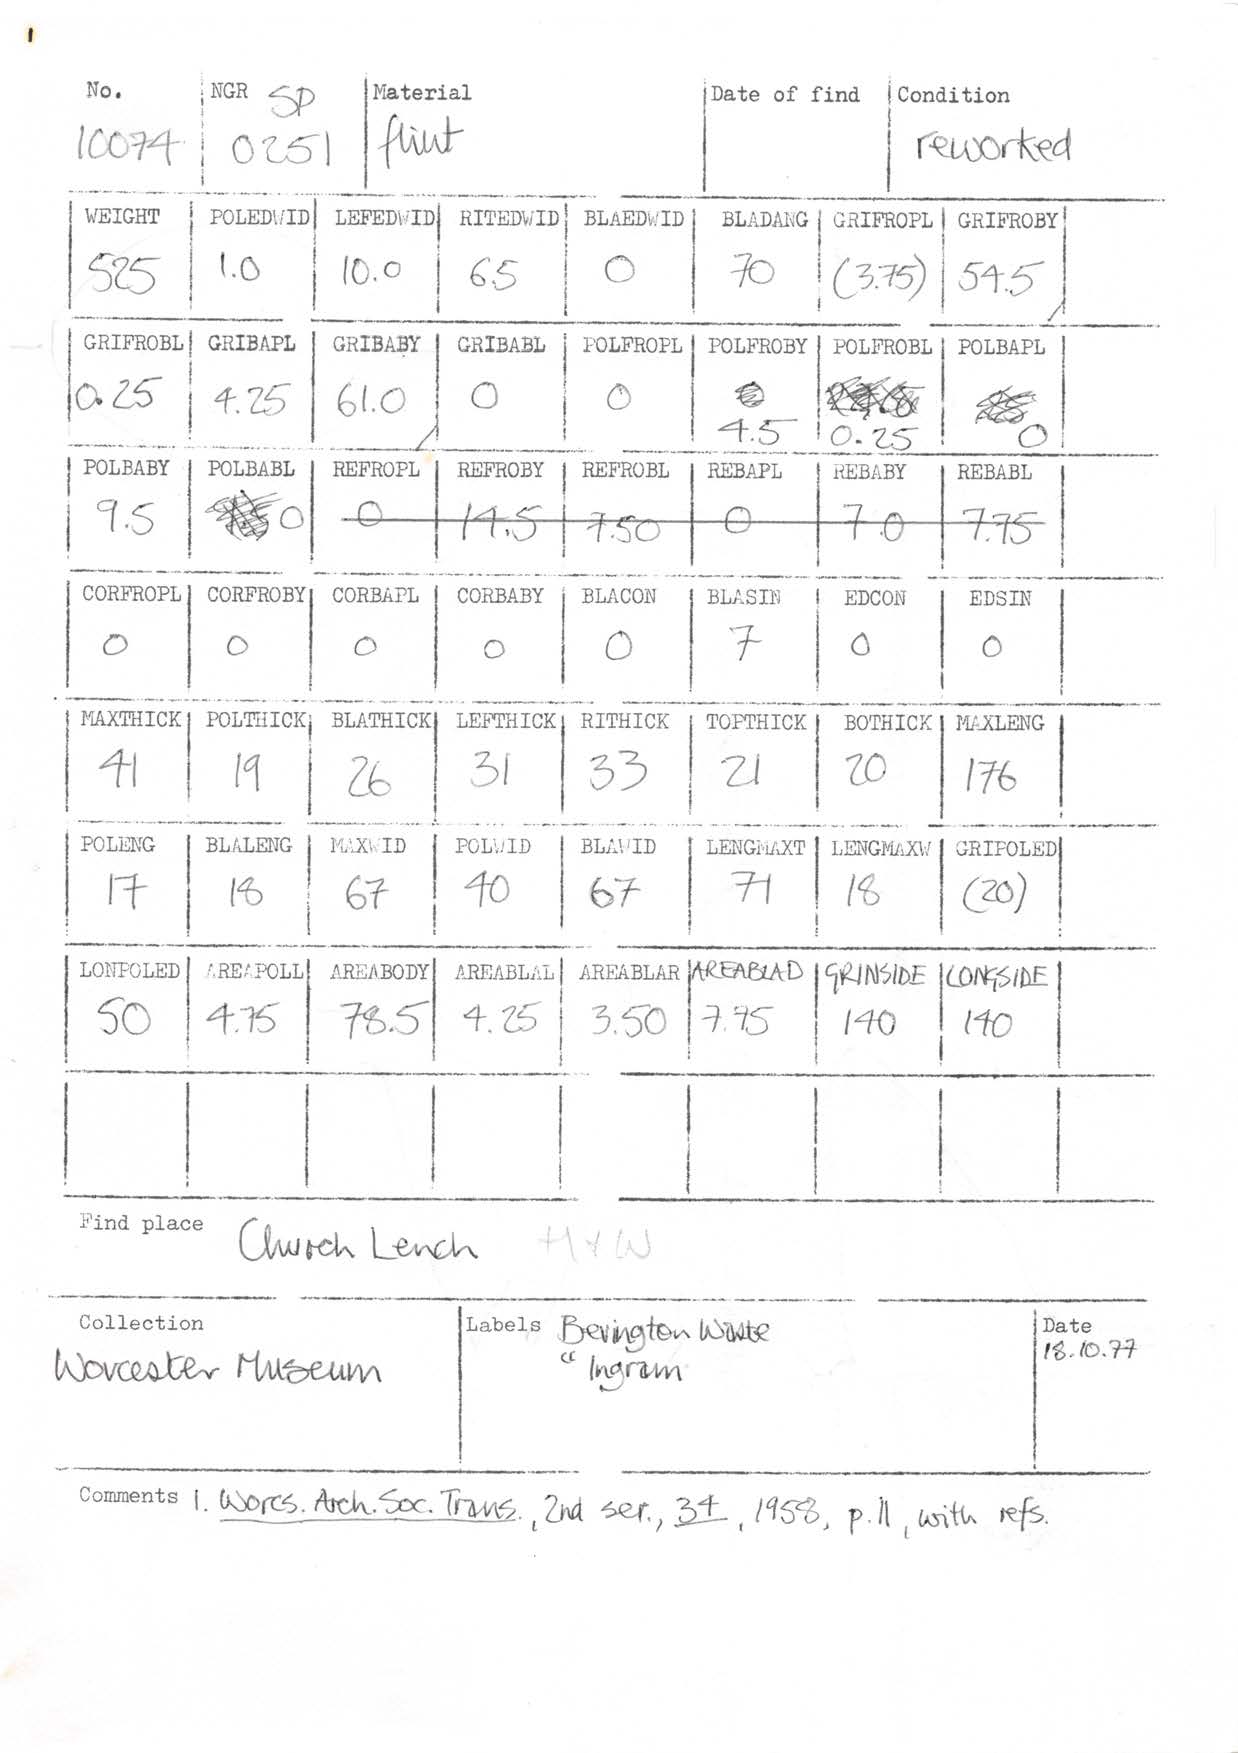 1
No. NGR SP Material Date of find Condition
10074 0251 flint reworked
WEIGHT POLEDWID LEFEDWID RITEDWID BLAEDWID BLADANG GRIFROPL GRIFROBY
525 1.0 10.0 6.5 0 70 (3.75) 54.5
GRIFROBL GRIBAPL GRIBABY GRIBABL POLFROPL POLFROBY POLFROBL POLBAPL
0.25 4.25 61.0 0 0 4.5 0.25 0
POLBABY POLBABL REFROPL REFROBY REFROBL REBAPL REBABY REBABL
9.5 0 0 14.5 7.50 0 7.0 7.75
CORFROPL CORFROBY CORBAPL CORBABY BLACON BLASIN EDCON EDSIN
0 0 0 0 0 7 0 0
MAXTHICK POLTHICK BLATHICK LEFTHICK RITHICK TOPTHICK BOTHICK MAXLENG
41 19 26 31 33 21 20 176
POLENG BLALENG MAXWID POLWID BLAWID LENGMAXT LENGMAXW GRIPOLED
17 18 67 40 67 71 18 (20)
LONPOLED AREAPOLL AREABODY AREABLAL AREABLAR AREABLAD GRINSIDE LONGSIDE
50 4.75 78.5 4.25 3.50 7.75 140 140
Find place Church Lench H+W
Collection Labels Bevington Waste Date
Worcester Museum " Ingram 18.10.77
Comments 1. Worcs. Arch. Soc. Trans., 2nd ser., 34, 1958, p.11, with refs.